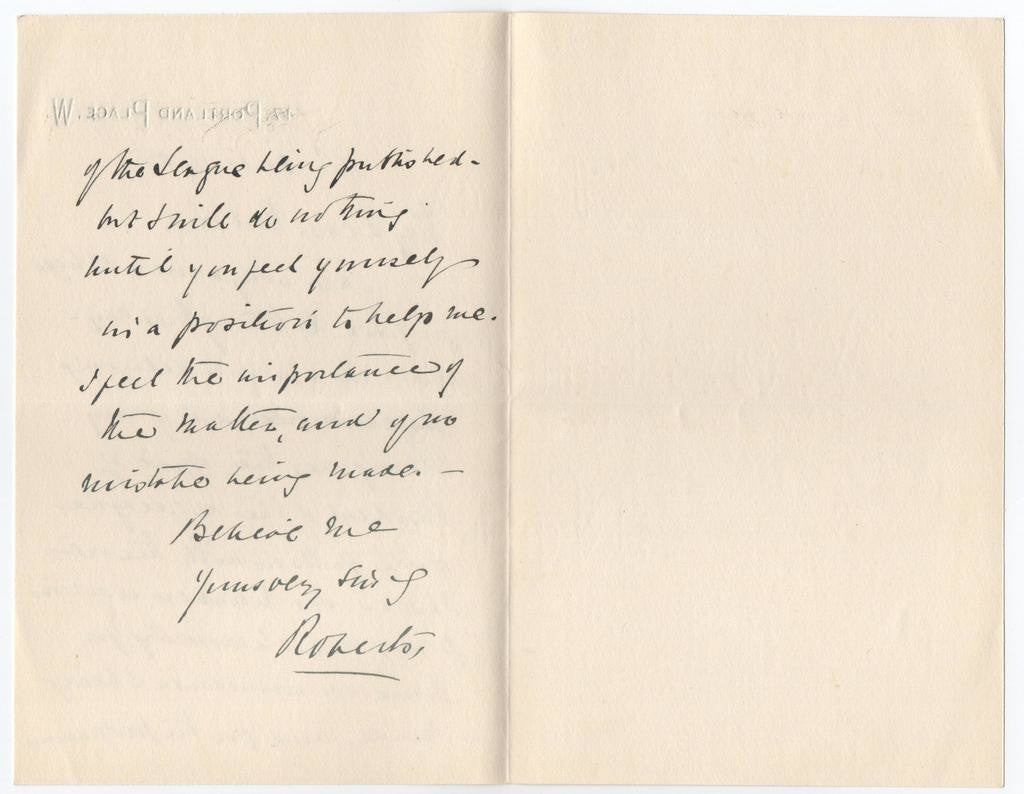 47, PORTLAND PLACE. W.
of the League being published -
but I will do nothing
until you feel yourself
in a position to help me.
I feel the importance of
the matter, and of no
mistake being made. -
Believe me
Yours very sincly
Roberts,